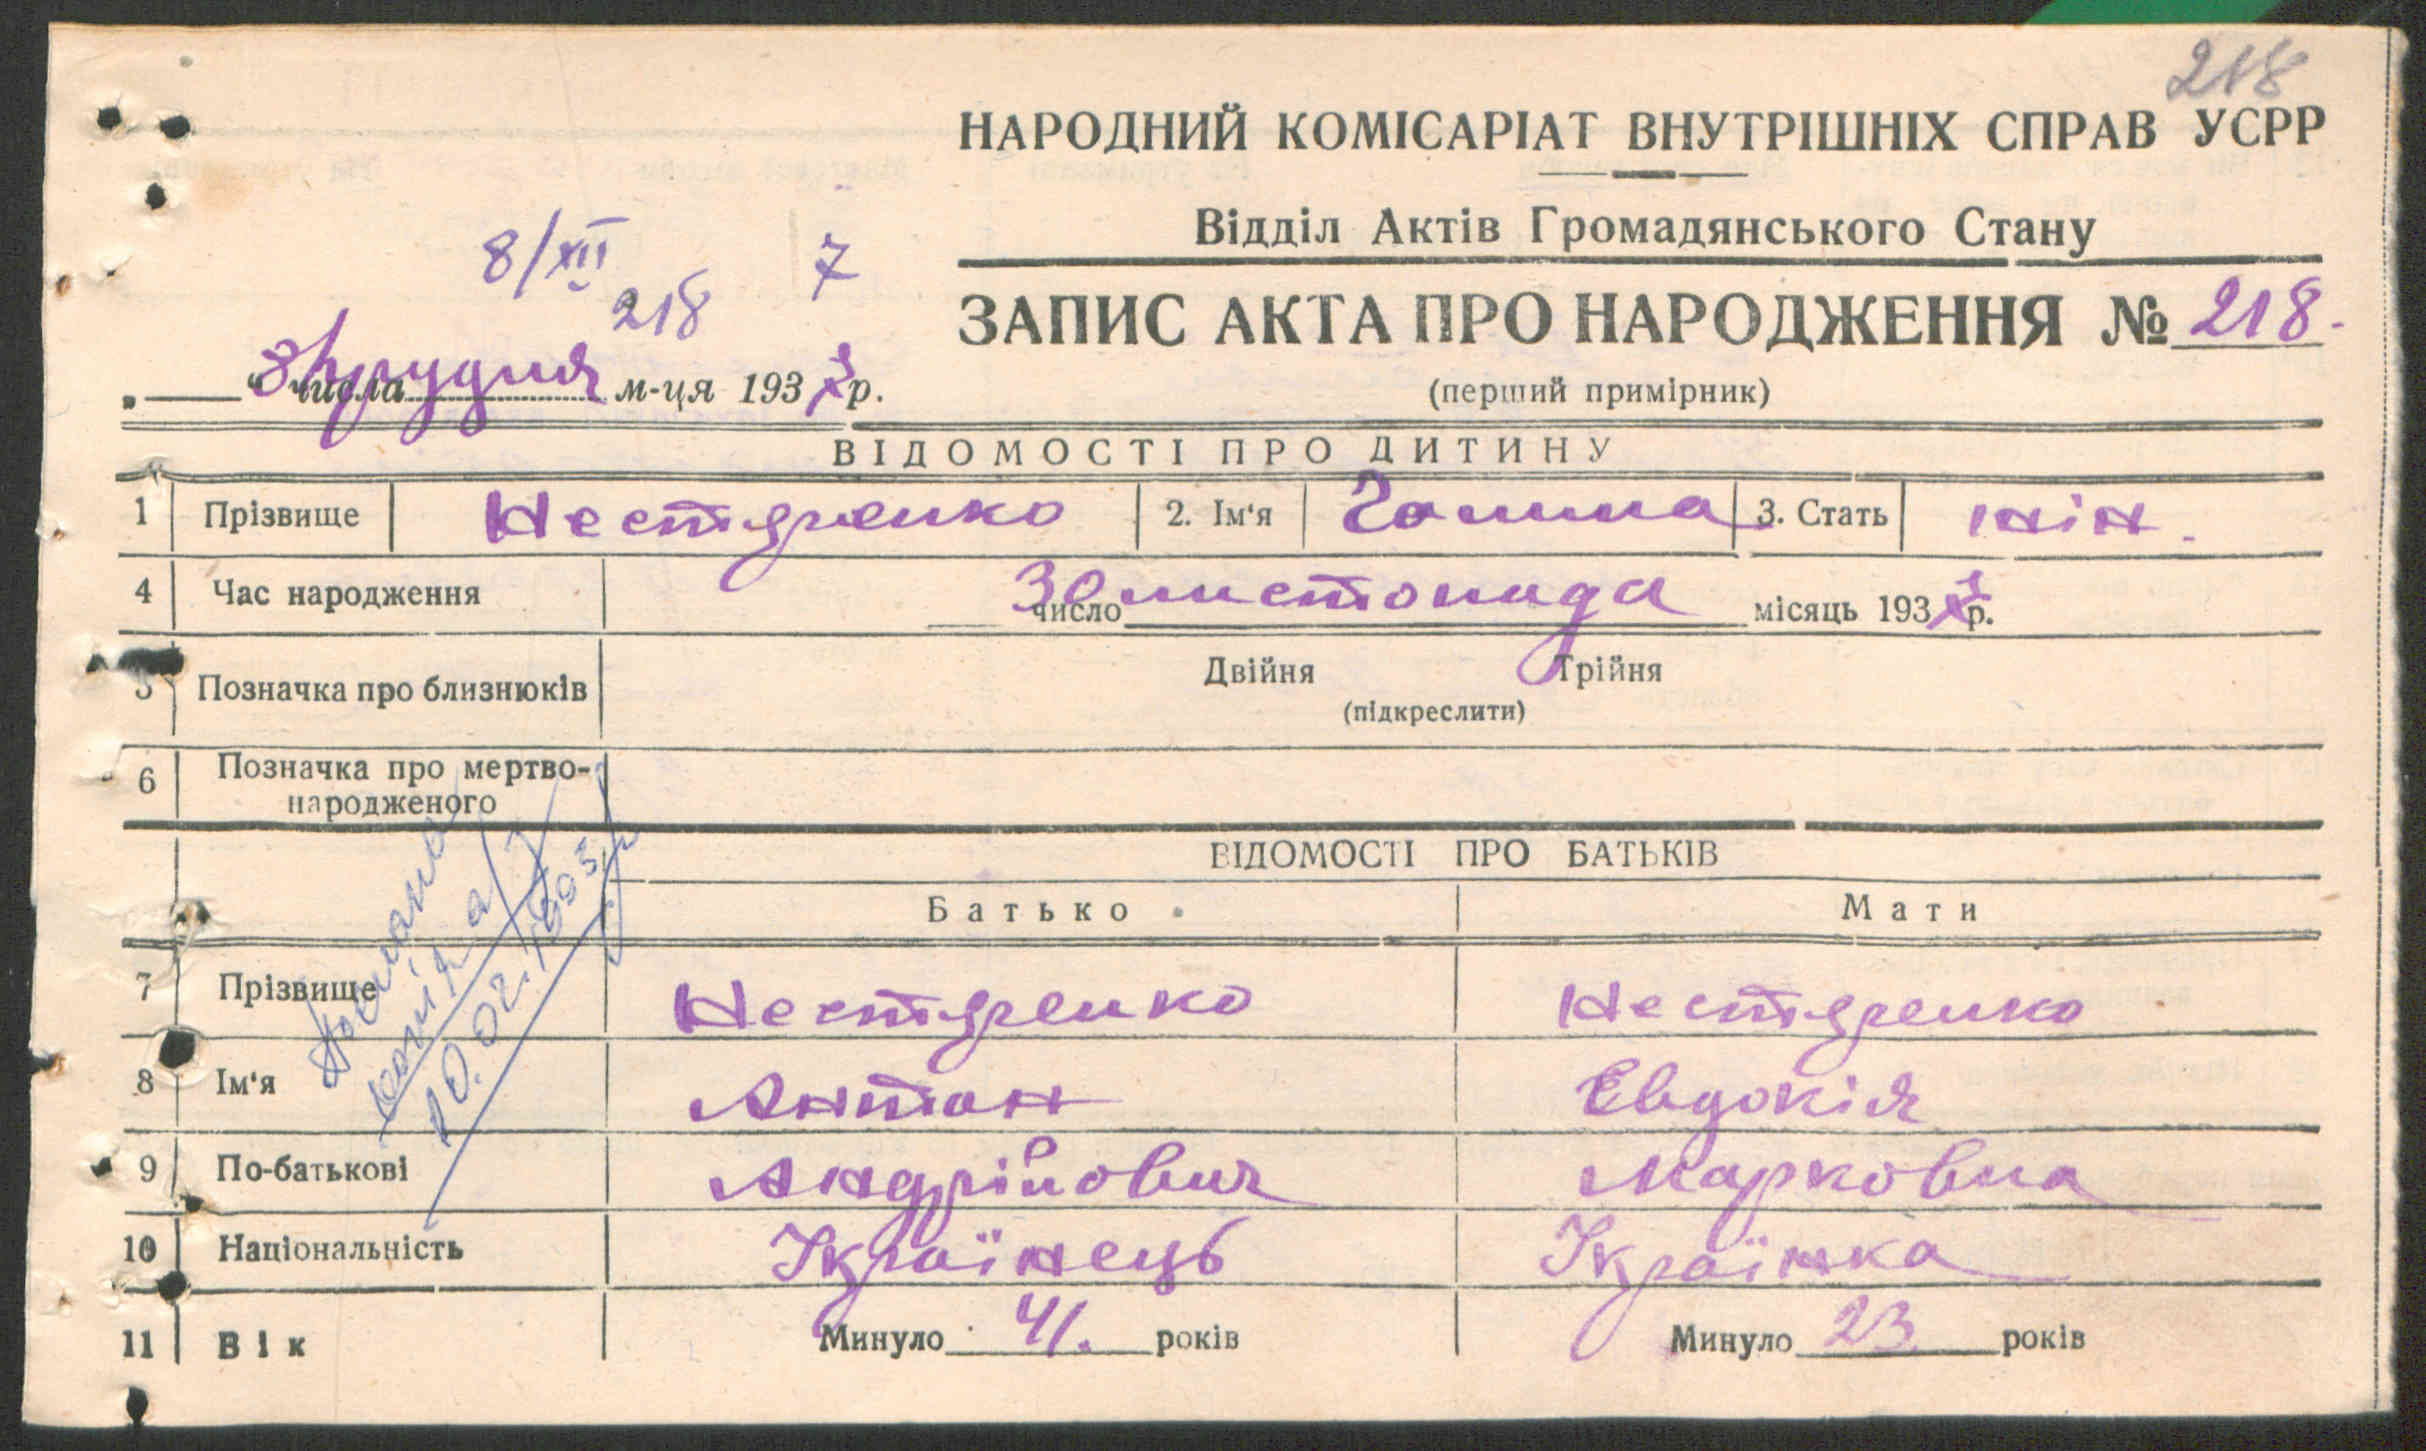 218
НАРОДНИЙ КОМІСАРІАТ ВНУТРІШНІХ СПРАВ УСРР
Відділ Актів Громадянського Стану
8/XII 7
218
ЗАПИС АКТА ПРО НАРОДЖЕННЯ № 218.
„ “ 8 числа грудня м-ця 1937 р.
(перший примірник)
ВІДОМОСТІ ПРО ДИТИНУ
1 Прізвище Нестяренко 2. Ім'я Галина 3. Стать жін.
4 Час народження 30 число листопада місяць 1937 р.
5 Позначка про близнюків Двійня Трійня
(підкреслити)
6 Позначка про мертво-
народженого
ВІДОМОСТІ ПРО БАТЬКІВ
Батько Мати
7 Прізвище Нестяренко Нестяренко
8 Ім'я Антон Евдокія
9 По-батькові Андрійович Марковна
10 Національність Українець Українка
11 Вік Минуло 41. років Минуло 23. років
копія